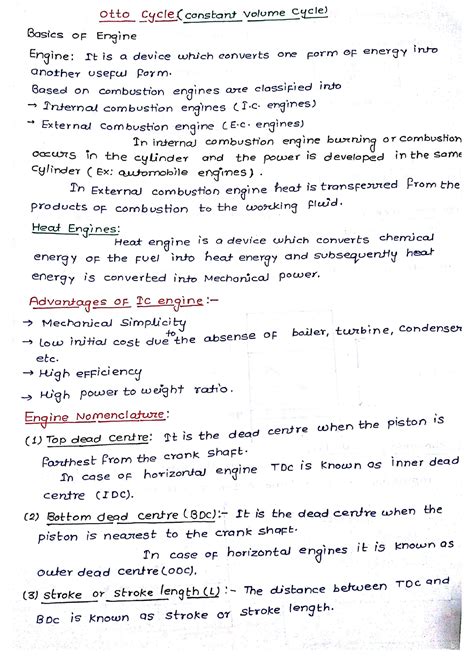 Otto Cycle (constant Volume Cycle)
Basics of Engine
Engine: It is a device which converts one form of energy into
another useful form.
Based on combustion engines are classified into
→ Internal combustion engines (I.C. engines)
→ External Combustion engine (E.C. engines)
In internal combustion engine burning or combustion
occurs in the cylinder and the power is developed in the same
cylinder (Ex: automobile engines).
In External combustion engine heat is transferred from the
products of combustion to the working fluid.
Heat Engines:
Heat engine is a device which converts chemical
energy of the fuel into heat energy and subsequently heat
energy is converted into Mechanical power.
Advantages of IC engine:-
→ Mechanical Simplicity
→ low initial cost due to the absense of boiler, turbine, Condenser
etc.
→ High efficiency
→ High power to weight ratio.
Engine Nomenclature:
(1) Top dead Centre: It is the dead centre when the piston is
farthest from the crank shaft.
In case of horizontal engine TDC is known as inner dead
centre (IDC).
(2) Bottom dead Centre (BDC):- It is the dead centre when the
piston is nearest to the crank shaft.
In case of horizontal engines it is known as
outer dead centre (ODC).
(3) stroke or stroke length (L):- The distance between TDC and
BDC is known as stroke or stroke length.